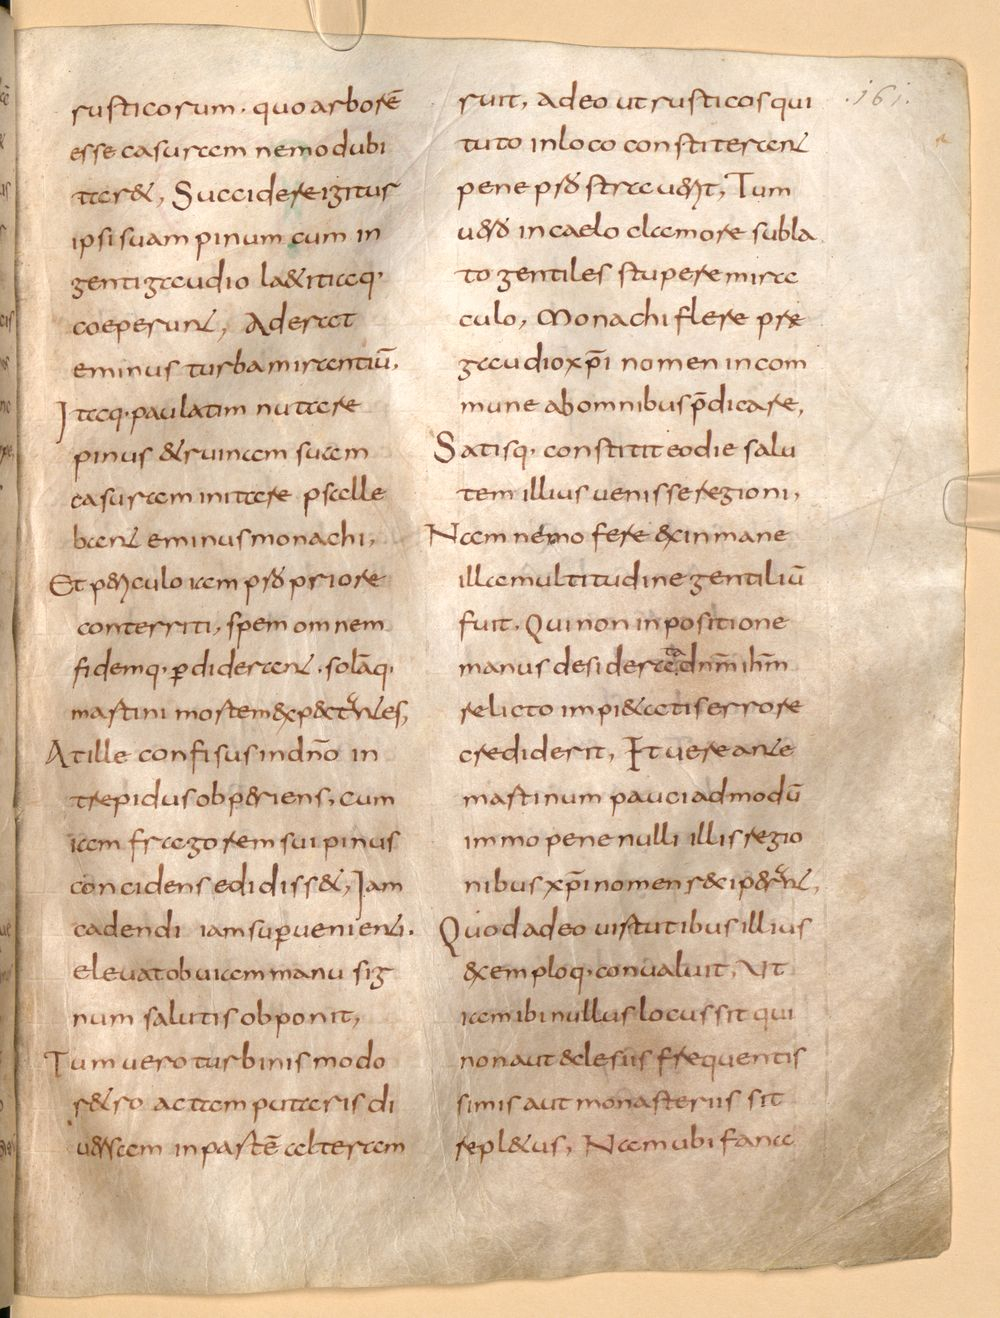 rusticorum. quo arborē
esse casuram nemo dubi
tar&, Succidere igitur
ipsi suam pinum cum in
genti gaudio la&itiaq;
coeperunt, Aderat
eminus turba mirantiū,
Itaq; paulatim nutare
pinus & ruinam suam
casuram initare p salle
bant eminus monachi,
Et periculo iam p̄ priore
conterriti, spem omnem
fidemq; ꝑdiderant. solāq;
martini mortem exp&antes,
At ille confisus in dn̄o in
trepidus obperiens, cum
iam fragorem sui pinus
concidens edidiss&, Iam
cadenti iam suꝑvenienti.
elevat obviam manu sig
num salutis obponit,
Tum vero turbinis modo
r&ro actam putaris di
versam in partē alteram
ruit, adeo ut rusticos qui
tuto in loco constiterant
pene p̄ straverit, Tum
vero in caelo clamore subla
to gentiles stupere mira
culo, Monachi flere prae
gaudio xp̄i nomen in com
mune ab omnibus p̄dicare,
Satisq; constitit eo die salu
tem illius venisse regioni,
Nam nemo fere ex in mane
illa multitudine gentiliū
fuit. Qui non inpositione
manus desiderata dn̄m ih̄m
relicto impi&atis errore
crediderit, Et vere ante
martinum pauci admodū
immo pene nulli illis regio
nibus xp̄i nomen receperant,
Quod adeo virtutibus illius
exemploq; convaluit, Ut
iam ibi nullus locus sit qui
non aut eclesiis frequentis
simis aut monasteriis sit
repl&us, Nam ubi fana
.161.